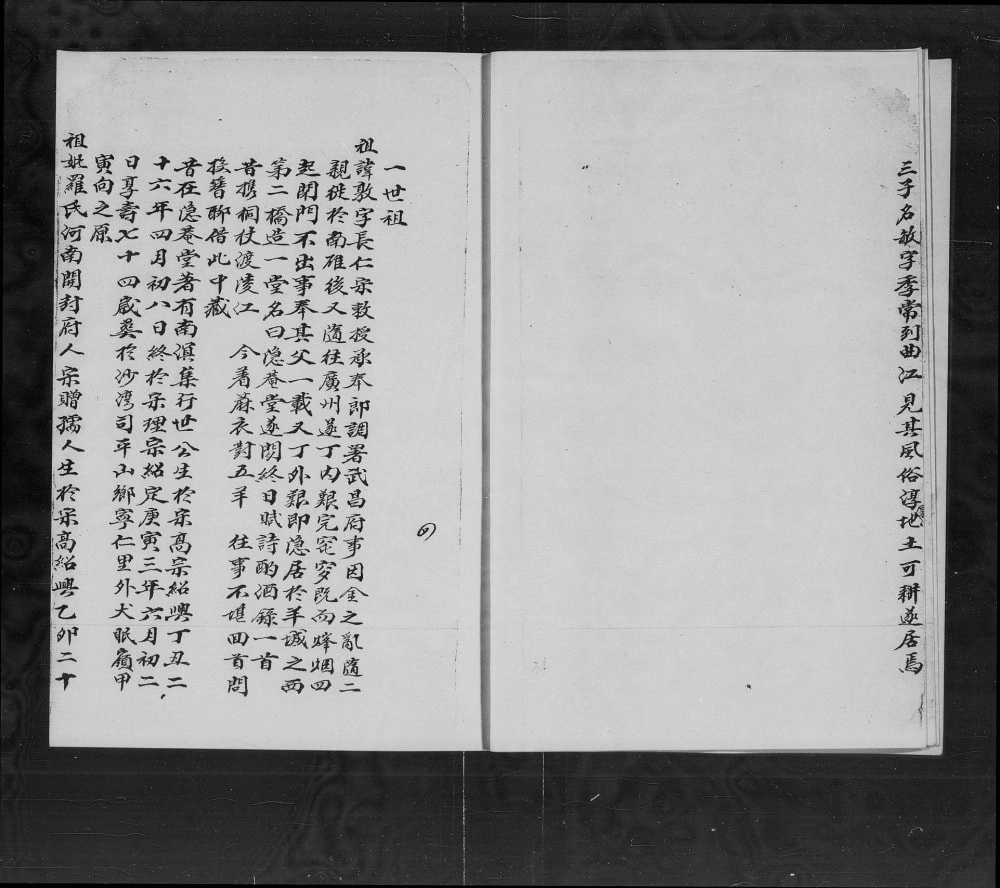 三子名敏字季常到曲江見其風俗淳地土可耕遂居焉
一世祖
祖諱敦字長仁宋教授承奉郎調署武昌府事因金之亂隨二
親徙於南雄後又隨往廣州遂丁內艱完窀穸既而烽烟四
起閉門不出事奉其父一載又丁外艱即隱居於羊城之西
第二橋造一堂名曰隱菴堂遂閱終日賦詩酌酒錄一首
昔携桐杖渡凌江 今著蔴衣對五羊 往事不堪回首問
投簪聊借此中藏
昔在隱菴堂著有南溟集行世公生於宋高宗紹興丁丑二
十六年四月初八日終於宋理宗紹定庚寅三年六月初二
日享壽七十四歲葬於沙灣司平山鄉寧仁里外犬眠嶺甲
寅向之原
祖妣羅氏河南開封府人宋贈孺人生於宋高紹興乙卯二十